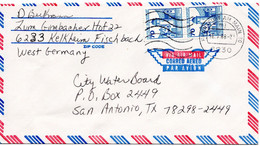 D Buchmann
Zum Gimbacher Hof 22
6233 Kelkheim Fischbach
ZIP CODE
West Germany
VIA AIR MAIL
CORREO AEREO
PAR AVION
City Water Board
P.O. Box 2449
San Antonio, TX 78298-2449